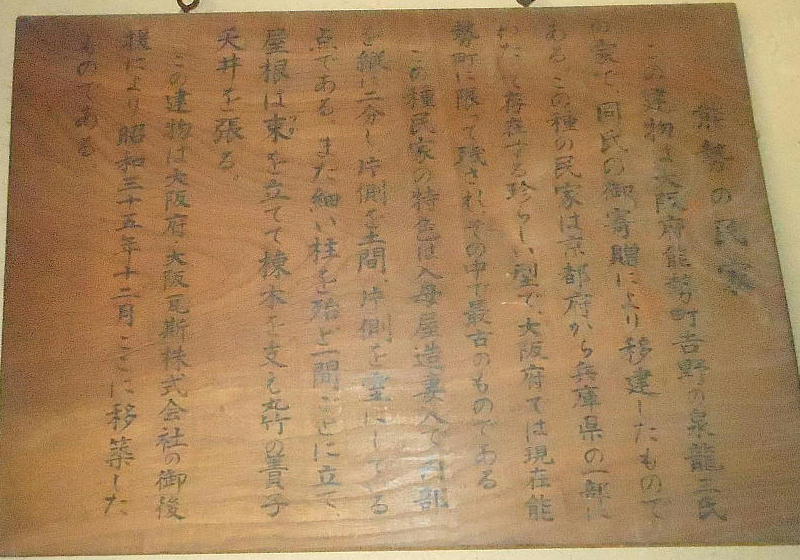 能勢の民家
この建物は大阪府能勢町吉野の泉龍三氏
の家で、同氏の御寄贈により移建したもので
ある この種の民家は京都府から兵庫県の一部に
わたって存在する珍らしい型で、大阪府では現在能
勢町に限って残されその中で最古のものである
この種民家の特色は入母屋造妻入で内部
を縦に二分し片側を土間、片側を室にしてゐる
点である また細い柱を殆ど一間ごとに立て、
屋根は束を立てて棟木を支え丸竹の簀子
天井を張る。
この建物は大阪府・大阪瓦斯株式会社の御後
援により昭和三十五年十二月ここに移築した
ものである